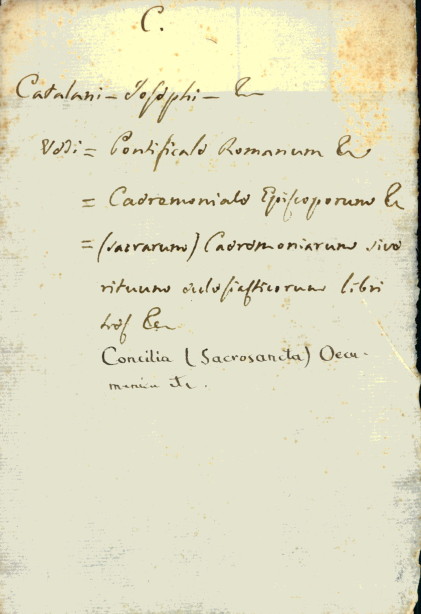 C.
Catalani - Josephi - &
Vedi = Pontificale Romanum &
= Caeremoniale Episcoporum &
= (sacrarum) Caeremoniarum sive
rituum ecclesiasticorum libri
tres &
Concilia (Sacrosancta) Oecu-
menica etc.